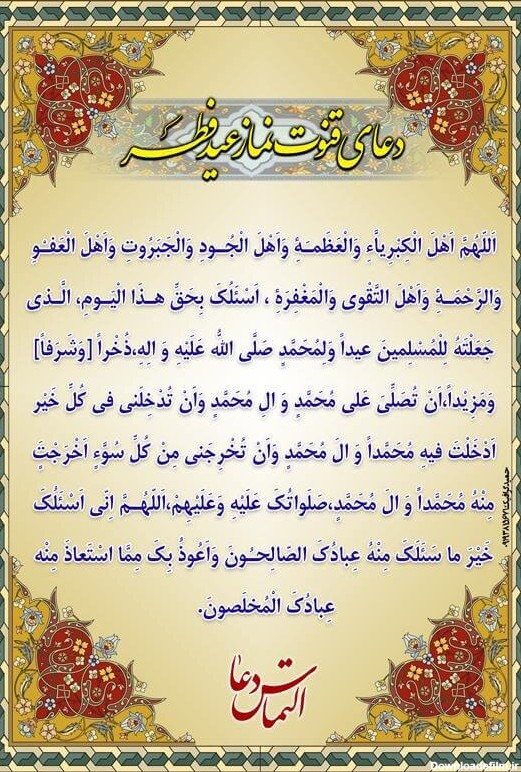 دعای قنوت نماز عید فطر
اَللّهُمَّ اَهْلَ الْکِبْرِیاَّءِ وَالْعَظَمَـةِ وَاَهْلَ الْجُـودِ وَالْجَبَرُوتِ وَاَهْلَ الْعَفْـوِ
وَالرَّحْمَـةِ وَاَهْلَ التَّقْوى وَالْمَغْفِرَةِ ، اَسْئَلُکَ بِحَقِّ هـذَا الْیَـومِ، الَّـذى
جَعَلْتَهُ لِلْمُسْلِمینَ عیداً وَلِمُحَمَّدٍ صَلَّى اللهُ عَلَیْهِ وَ الِهِ،ذُخْراً [وَشَرَفاً]
وَمَزِیْداً،اَنْ تُصَلِّىَ عَلى مُحَمَّدٍ وَ الِ مُحَمَّدٍ وَاَنْ تُدْخِلَنى فى کُلِّ خَیْرٍ
اَدْخَلْتَ فیهِ مُحَمَّداً وَ الَ مُحَمَّدٍ وَاَنْ تُخْرِجَنى مِنْ کُلِّ سُوَّءٍ اَخْرَجْتَ
مِنْهُ مُحَمَّداً وَ الَ مُحَمَّدٍ،صَلَواتُکَ عَلَیْهِ وَعَلَیْهِمْ،اَللّهُـمَّ اِنى اَسْئَلُکَ
خَیْرَ ما سَئَلَکَ مِنْهُ عِبادُکَ الصّالِحـُونَ وَاَعُوذُ بِکَ مِمَّا اسْتَعاذَ مِنْهُ
عِبادُکَ الْمُخلَصونَ.
التماس دعا